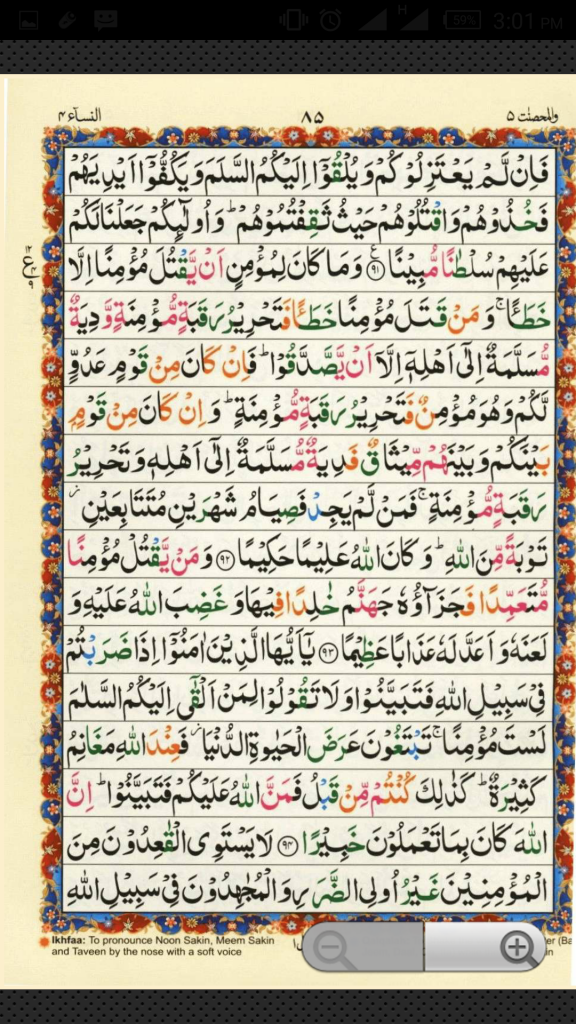 59% 3:01 PM
H
النسآء ۴ ۸۵ والمحصنٰت ۵
فَاِنْ لَّمْ يَعْتَزِلُوْكُمْ وَيُلْقُوْٓا اِلَيْكُمُ السَّلَمَ وَيَكُفُّوْٓا اَيْدِيَهُمْ
فَخُذُوْهُمْ وَاقْتُلُوْهُمْ حَيْثُ ثَقِفْتُمُوْهُمْ ؕ وَاُولٰٓئِكُمْ جَعَلْنَا لَكُمْ
عَلَيْهِمْ سُلْطٰنًا مُّبِيْنًا ﴿۹۱﴾ وَمَا كَانَ لِمُؤْمِنٍ اَنْ يَّقْتُلَ مُؤْمِنًا اِلَّا
۱۲
ع
۴
۹
خَطَـًٔا ۚ وَمَنْ قَتَلَ مُؤْمِنًا خَطَـًٔا فَتَحْرِيْرُ رَقَبَةٍ مُّؤْمِنَةٍ وَّدِيَةٌ
مُّسَلَّمَةٌ اِلٰٓى اَهْلِهٖٓ اِلَّآ اَنْ يَّصَّدَّقُوْا ؕ فَاِنْ كَانَ مِنْ قَوْمٍ عَدُوٍّ
لَّكُمْ وَهُوَ مُؤْمِنٌ فَتَحْرِيْرُ رَقَبَةٍ مُّؤْمِنَةٍ ؕ وَاِنْ كَانَ مِنْ قَوْمٍۢ
بَيْنَكُمْ وَبَيْنَهُمْ مِّيْثَاقٌ فَدِيَةٌ مُّسَلَّمَةٌ اِلٰٓى اَهْلِهٖ وَتَحْرِيْرُ
رَقَبَةٍ مُّؤْمِنَةٍ ۚ فَمَنْ لَّمْ يَجِدْ فَصِيَامُ شَهْرَيْنِ مُتَتَابِعَيْنِ ۫
تَوْبَةً مِّنَ اللّٰهِ ؕ وَكَانَ اللّٰهُ عَلِيْمًا حَكِيْمًا ﴿۹۲﴾ وَمَنْ يَّقْتُلْ مُؤْمِنًا
مُّتَعَمِّدًا فَجَزَآؤُهٗ جَهَنَّمُ خٰلِدًا فِيْهَا وَغَضِبَ اللّٰهُ عَلَيْهِ وَ
لَعَنَهٗ وَاَعَدَّ لَهٗ عَذَابًا عَظِيْمًا ﴿۹۳﴾ يٰٓاَيُّهَا الَّذِيْنَ اٰمَنُوْٓا اِذَا ضَرَبْتُمْ
فِيْ سَبِيْلِ اللّٰهِ فَتَبَيَّنُوْا وَلَا تَقُوْلُوْا لِمَنْ اَلْقٰٓى اِلَيْكُمُ السَّلٰمَ
لَسْتَ مُؤْمِنًا ۚ تَبْتَغُوْنَ عَرَضَ الْحَيٰوةِ الدُّنْيَا ۫ فَعِنْدَ اللّٰهِ مَغَانِمُ
كَثِيْرَةٌ ؕ كَذٰلِكَ كُنْتُمْ مِّنْ قَبْلُ فَمَنَّ اللّٰهُ عَلَيْكُمْ فَتَبَيَّنُوْا ؕ اِنَّ
اللّٰهَ كَانَ بِمَا تَعْمَلُوْنَ خَبِيْرًا ﴿۹۴﴾ لَا يَسْتَوِى الْقٰعِدُوْنَ مِنَ
الْمُؤْمِنِيْنَ غَيْرُ اُولِى الضَّرَرِ وَالْمُجٰهِدُوْنَ فِيْ سَبِيْلِ اللّٰهِ
Ikhfaa: To pronounce Noon Sakin, Meem Sakin
and Taveen by the nose with a soft voice